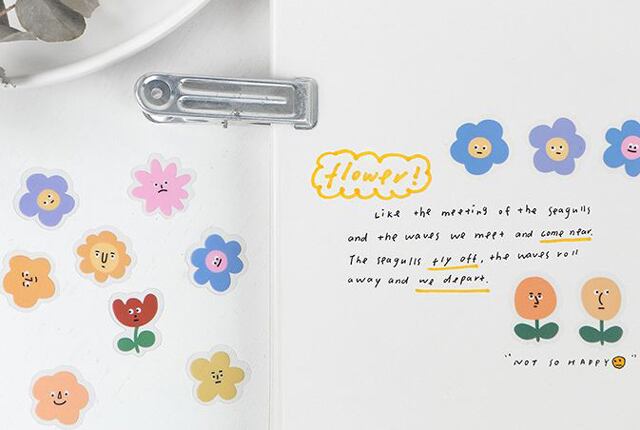 flower!
Like the meeting of the seagulls
and the waves we meet and come near.
The seagulls fly off, the waves roll
away and we depart.
"NOT SO HAPPY"